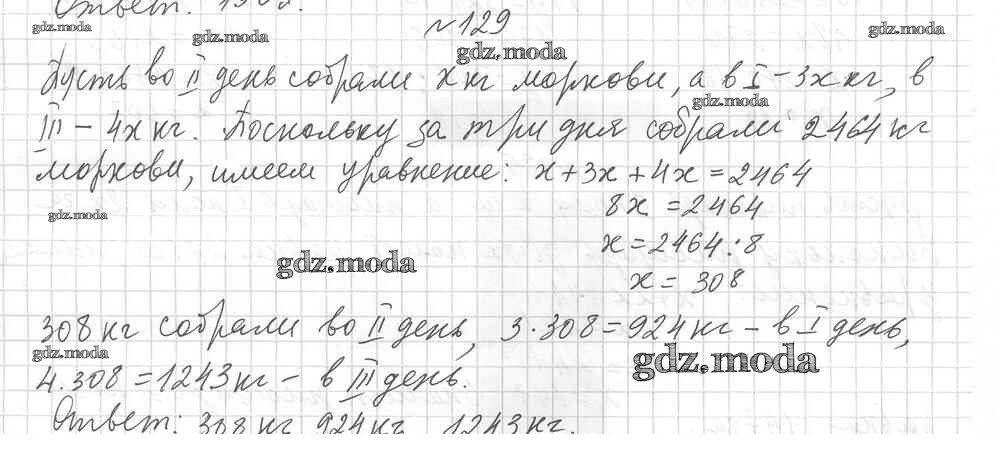 Ответ:
№129
gdz.moda
gdz.moda
gdz.moda
gdz.moda
Пусть во II день собрали x кг моркови, а в I – 3x кг, в
gdz.moda
III – 4x кг. Поскольку за три дня собрали 2464 кг
моркови, имеем уравнение: x + 3x + 4x = 2464
gdz.moda
8x = 2464
x = 2464 : 8
gdz.moda
x = 308
308 кг собрали во II день, 3 · 308 = 924 кг – в I день,
gdz.moda
gdz.moda
4 · 308 = 1243 кг – в III день.
Ответ: 308 кг, 924 кг, 1243 кг.